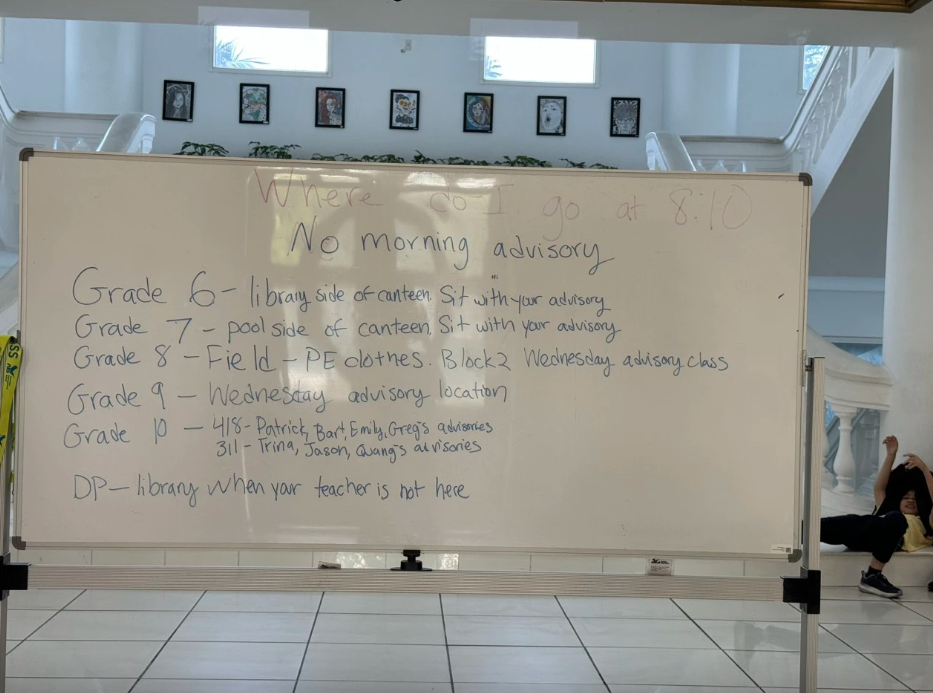 Where do I go at 8:10
No morning advisory
Grade 6 - library side of canteen. Sit with your advisory
Grade 7 - pool side of canteen. Sit with your advisory
Grade 8 - Field - PE clothes. Block 2 Wednesday advisory class
Grade 9 - Wednesday advisory location
Grade 10 - 418 - Patrick, Bart, Emily, Greg's advisories
311 - Trina, Jason, Quang's advisories
DP - library when your teacher is not here